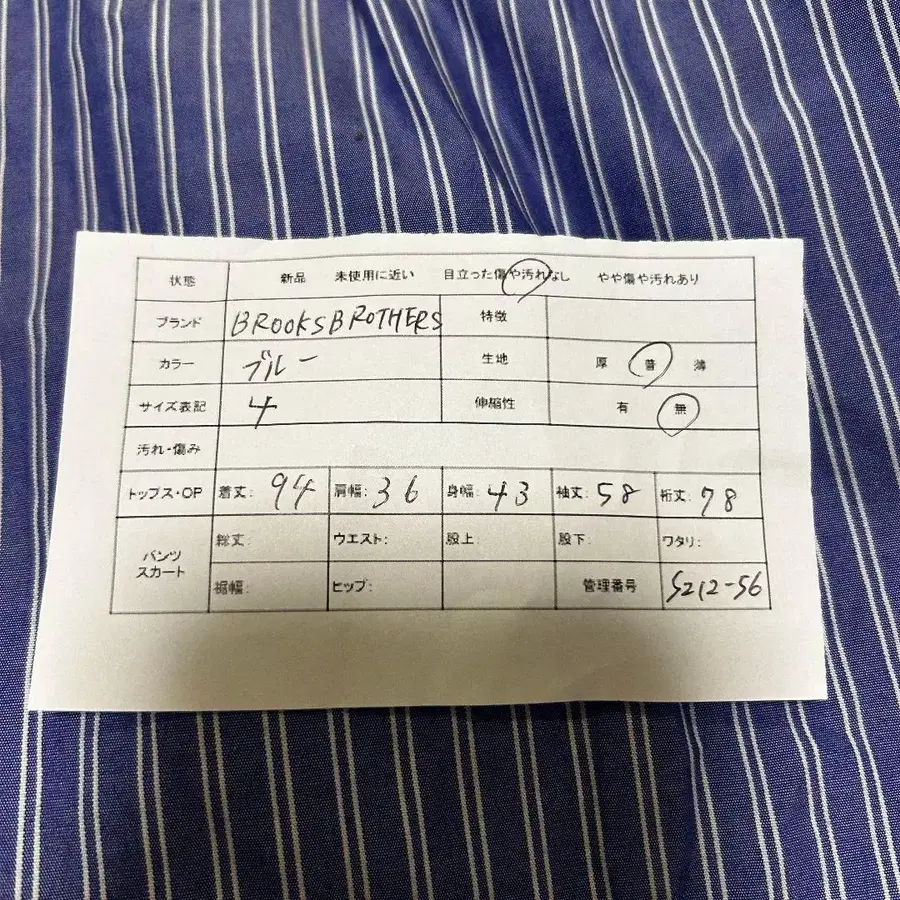 状態 新品 未使用に近い 目立った傷や汚れなし やや傷や汚れあり
ブランド BROOKS BROTHERS 特徴
カラー ブルー 生地 厚 普 薄
サイズ表記 4 伸縮性 有 無
汚れ・傷み
トップス・OP 着丈: 94 肩幅: 36 身幅: 43 袖丈: 58 裄丈: 78
パンツ スカート 総丈: ウエスト: 股上: 股下: ワタリ:
裾幅: ヒップ: 管理番号 S212-56